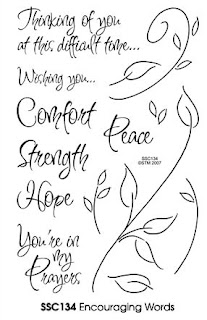 Thinking of you
at this difficult time...
Wishing you...
Comfort
Peace
Strength
SSC134
©STM 2007
Hope
You're in
my
Prayers
SSC134 Encouraging Words